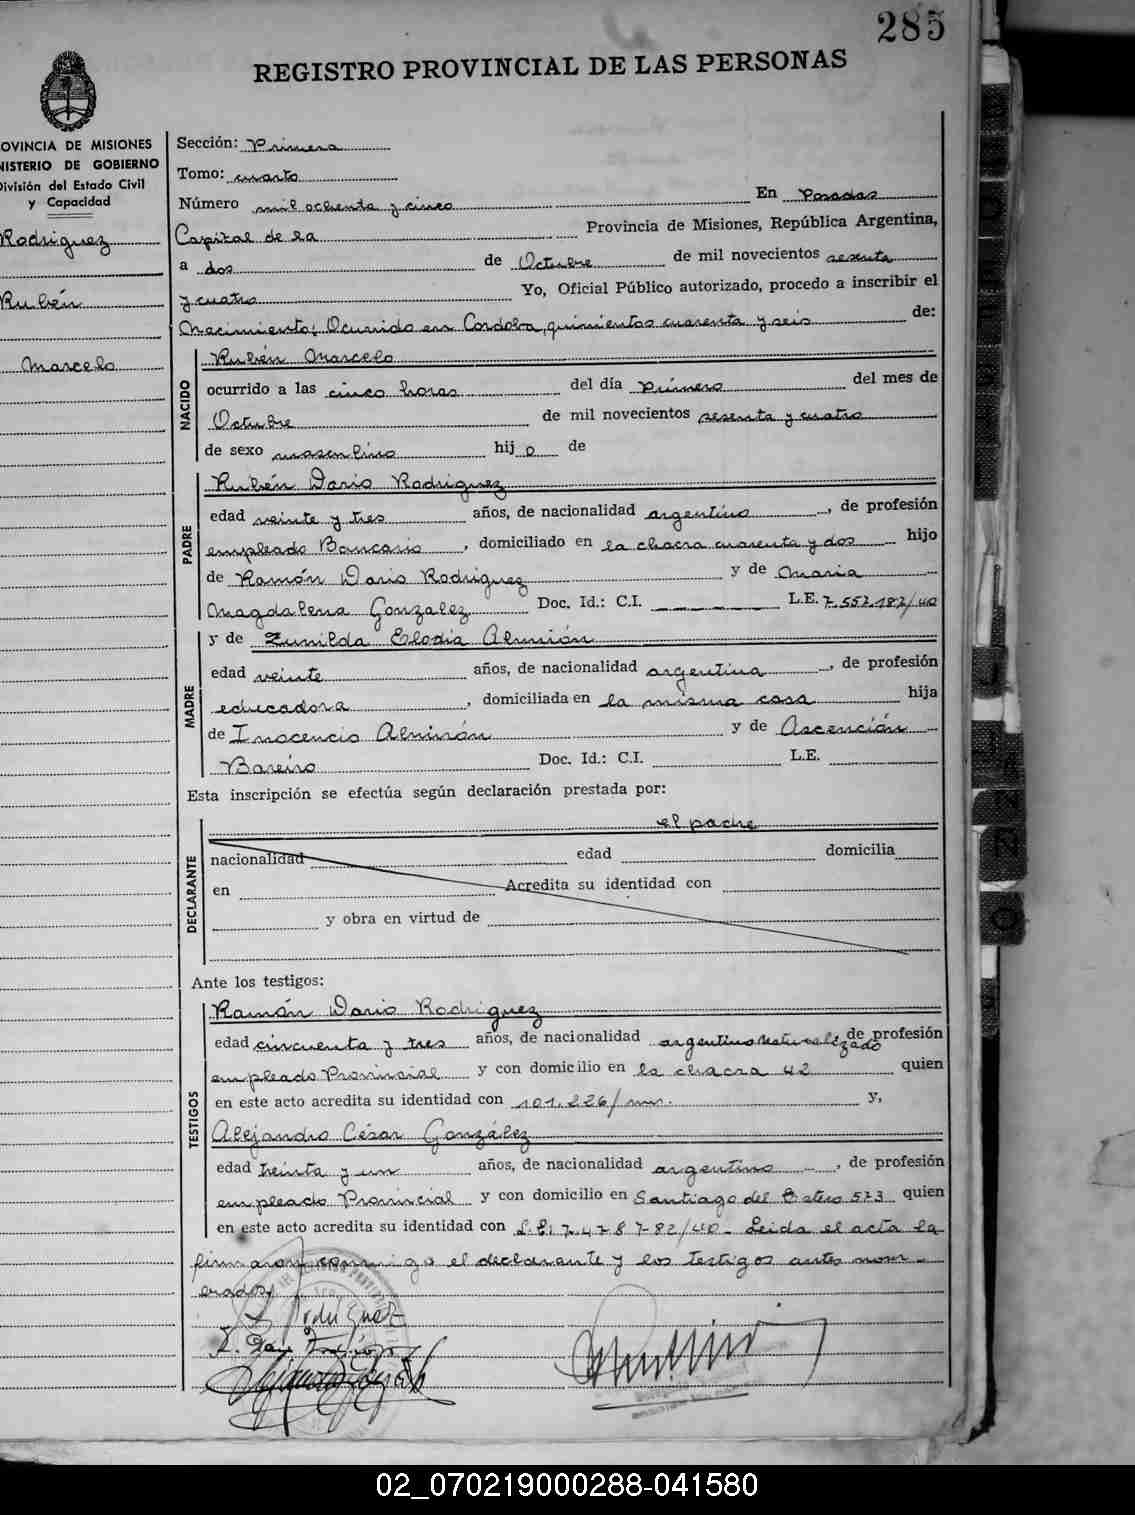 285
REGISTRO PROVINCIAL DE LAS PERSONAS
OVINCIA DE MISIONES
NISTERIO DE GOBIERNO
División del Estado Civil
y Capacidad
Rodriguez
Rubén
Marcelo
Sección: Primera
Tomo: cuarto
Número mil ochenta y cinco En Posadas
Capital de la Provincia de Misiones, República Argentina,
a dos de Octubre de mil novecientos sesenta
y cuatro Yo, Oficial Público autorizado, procedo a inscribir el
Nacimiento; Ocurrido en Cordoba, quinientos cuarenta y seis de:
NACIDO
Rubén Marcelo
ocurrido a las cinco horas del día Primero del mes de
Octubre de mil novecientos sesenta y cuatro
de sexo masculino hijo de
PADRE
Rubén Dario Rodriguez
edad veinte y tres años, de nacionalidad argentino, de profesión
empleado Bancario, domiciliado en la chacra cuarenta y dos hijo
de Ramón Dario Rodriguez y de Maria
Magdalena Gonzalez Doc. Id.: C.I. L.E. 7.552.182/40
MADRE
y de Zunilda Elodia Almirón
edad veinte años, de nacionalidad argentina, de profesión
educadora, domiciliada en la misma casa hija
de Inocencio Almirón y de Ascención
Bareiro Doc. Id.: C.I. L.E.
Esta inscripción se efectúa según declaración prestada por:
DECLARANTE
el padre
nacionalidad edad domicilia
en Acredita su identidad con
y obra en virtud de
Ante los testigos:
TESTIGOS
Ramón Dario Rodriguez
edad cincuenta y tres años, de nacionalidad argentino Naturalizado de profesión
empleado Provincial y con domicilio en la chacra 42 quien
en este acto acredita su identidad con 101.226/ y,
Alejandro César González
edad treinta y un años, de nacionalidad argentino, de profesión
empleado Provincial y con domicilio en Santiago del Estero 573 quien
en este acto acredita su identidad con L.E: 7.478782/40 - Leida el acta la
firmaron conmigo el declarante y los testigos antes nom-
erados,
02_070219000288-041580